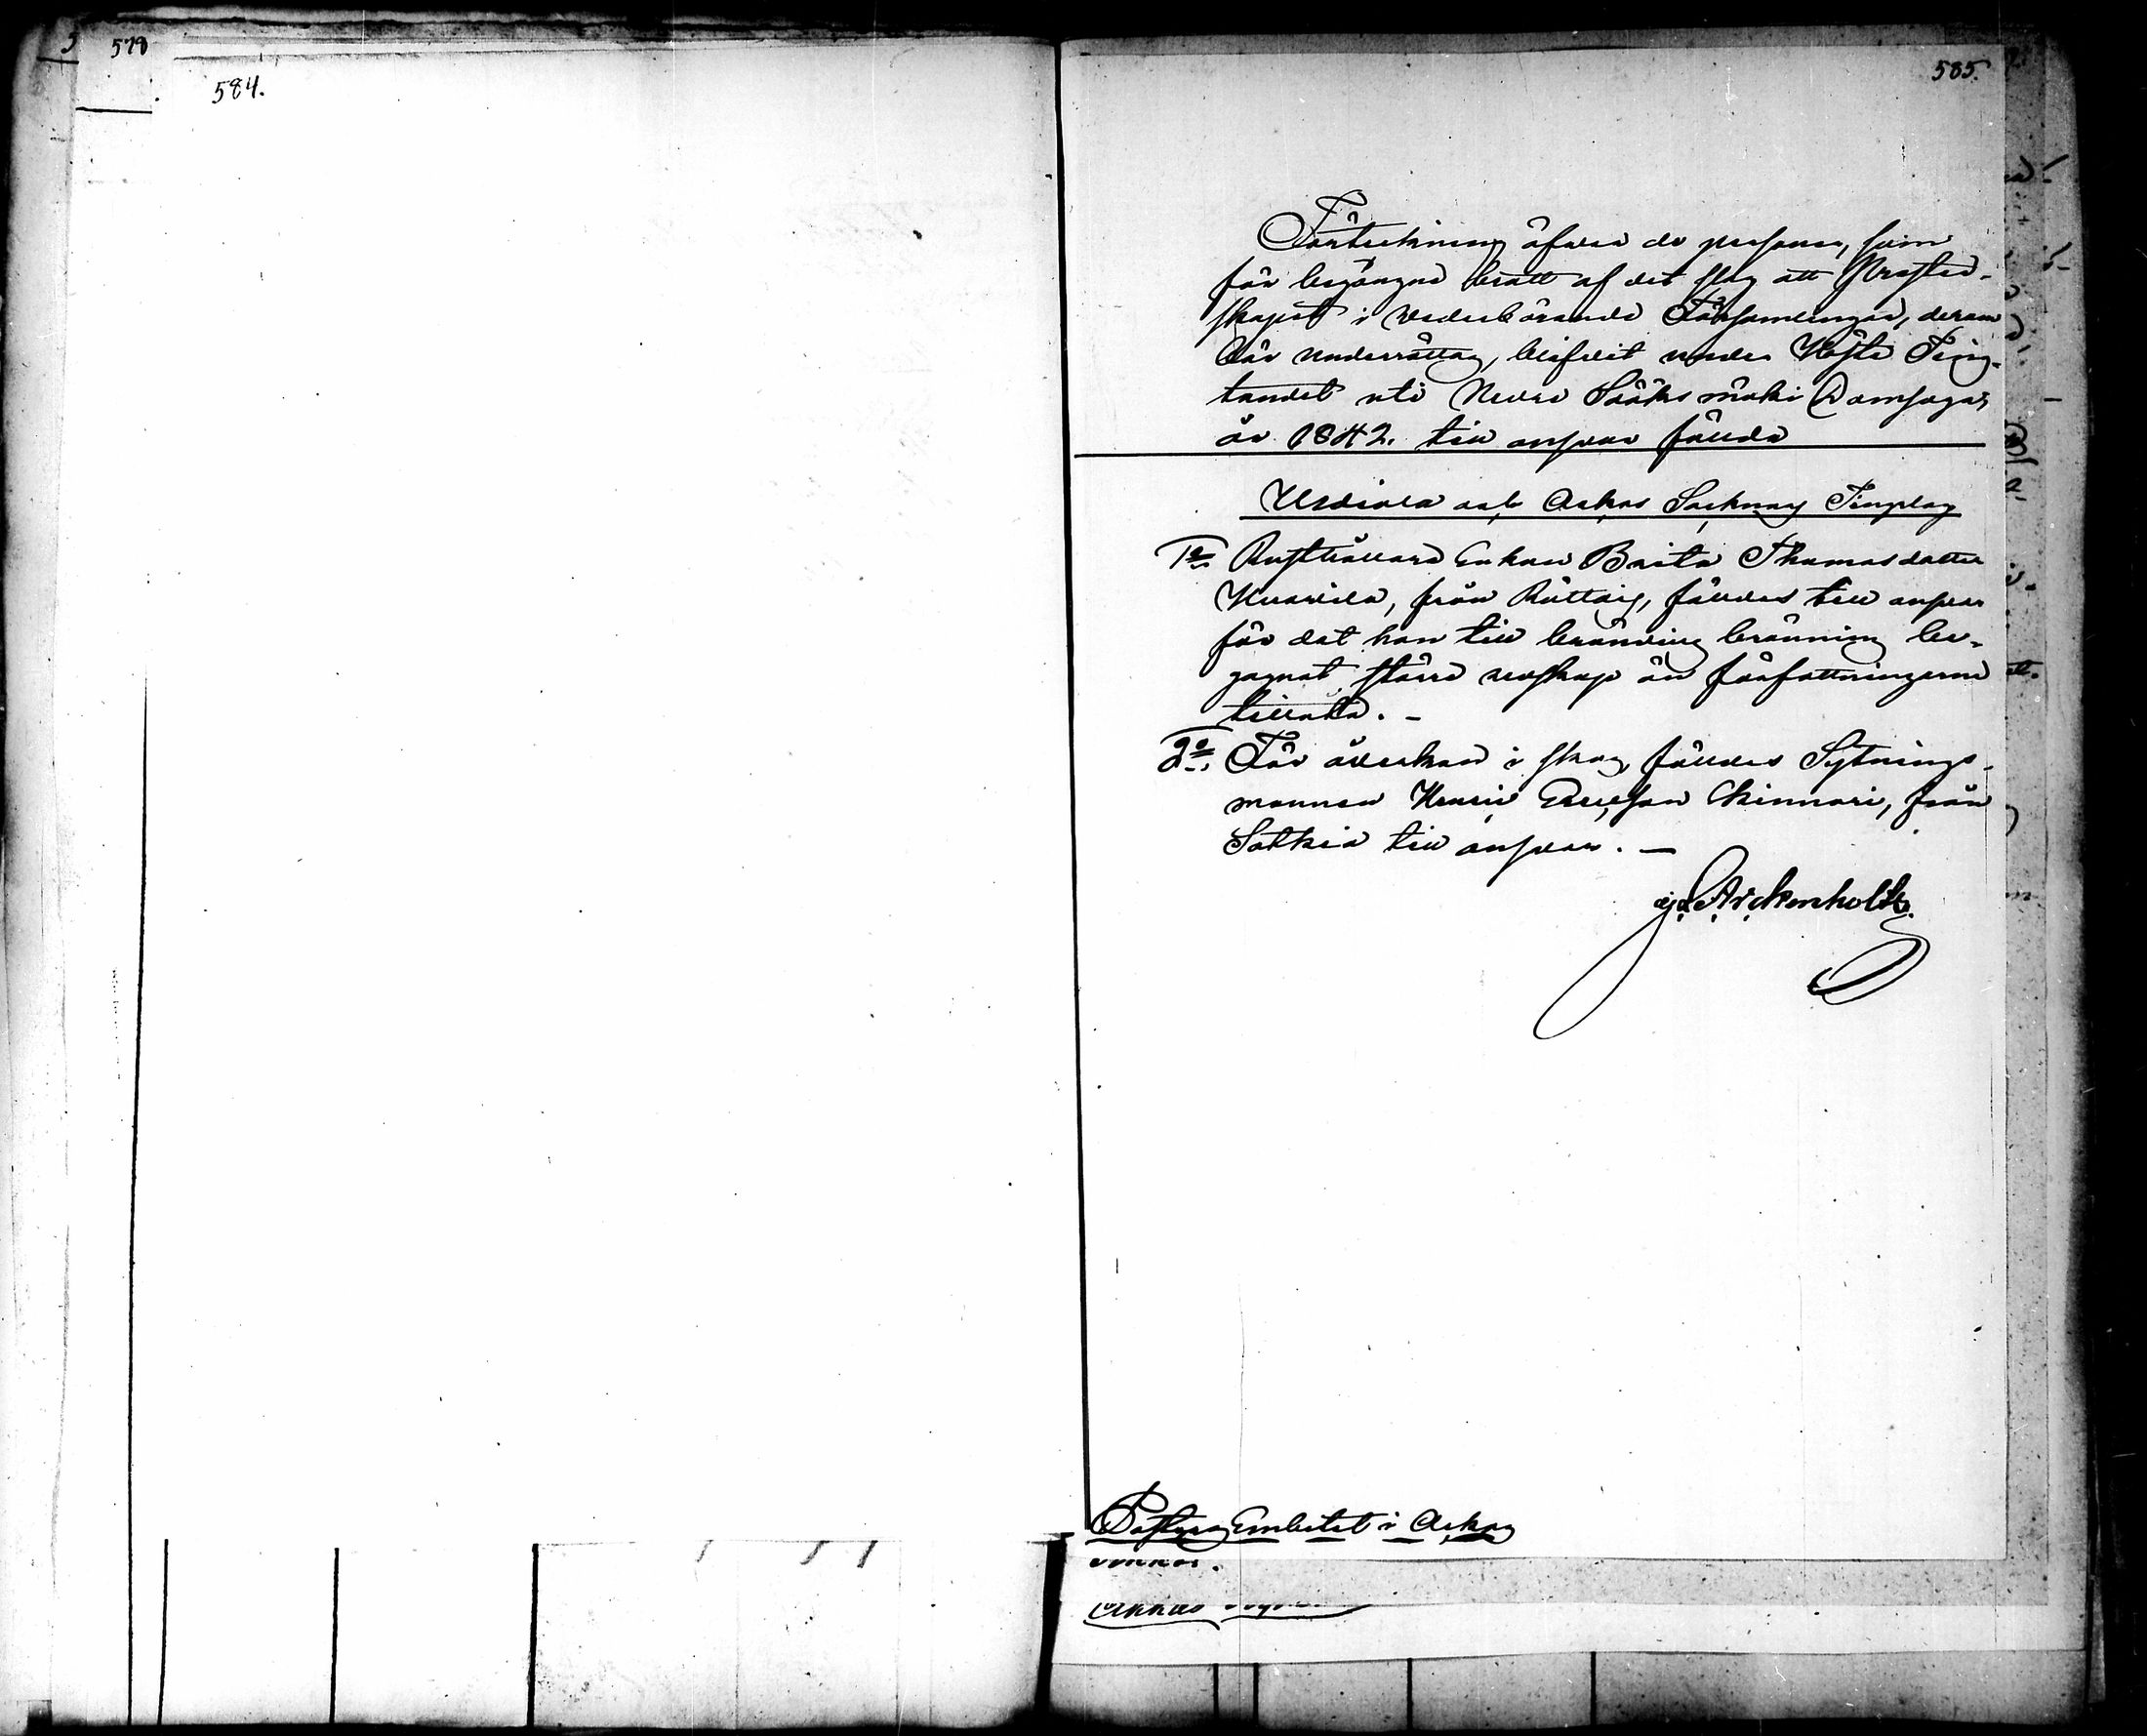 578
584.
585.
Förteckning öfver de personer, som
för begångne brott af det slag att Prester-
skapet i vederbörande Församlingar, derom
bör underrättas, blifvit under Höste Ting-
tandet uti Nedre Sääksmäki Domsaga,
år 1842. till ansvar fällda
Urdiala och Ackas Socknars Tingslag
1o Rusthållare Enkan Brita Thomasdotter
från fälldes till ansvar
för det hon till bränvins bränning be-
gagnat större redskap än författningarne
tillåta. –
2o. För åverkan i skog fälldes Sytnings-
mannen Henric Ericsson Kinnari, från
Sotkia till ansvar. –
Arckenholtz.
Pastors Embetet i Ackas